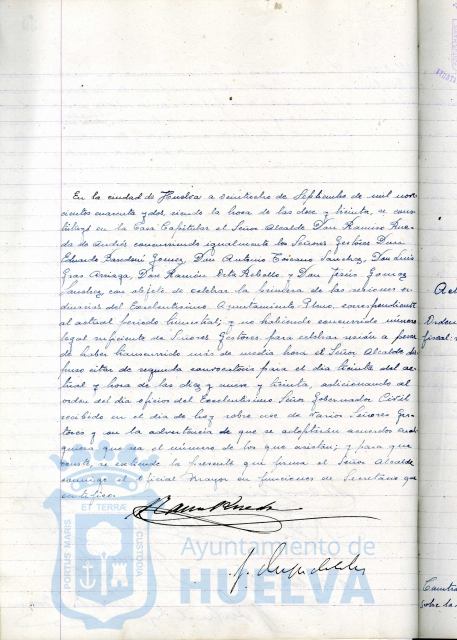 En la ciudad de Huelva a veintisiete de Septiembre de mil nove
cientos cuarenta y dos, siendo la hora de las doce y treinta, se cons
tituyó en la Casa Capitular el Señor Alcalde Don Ramiro Rue
da de Andrés concurriendo igualmente los Señores Gestores Don
Eduardo Gomez, Don Antonio Toscano Sanchez, Don Luis
Gras Arriaga, Don Ramón Rebollo y Don Jesús Gomez
Sanchez con objeto de celebrar la primera de las sesiones or
dinarias del Excelentisimo Ayuntamiento Pleno, correspondiente
al actual periodo trimestral; y no habiendo concurrido número
legal suficiente de Señores Gestores para celebrar sesión a pesar
de haber transcurrido más de media hora el Señor Alcalde dis
puso citar de segunda convocatoria para el día treinta del ac
tual y hora de las diez y nueve y treinta, adicionando al
orden del día oficio del Excelentisimo Señor Gobernador Civil
recibido en el día de hoy sobre cese de varios Señores Ges
tores y con la advertencia de que se adoptarán acuerdos cual
quiera que sea el número de los que asistan; y para que
conste, se extiende la presente que firma el Señor Alcalde
conmigo el Oficial Mayor en funciones de Secretario que
certifico.
PORTUS MARIS
ET TERRAE
CUSTODIA
Ayuntamiento de
HUELVA
Orden
fiscal
sobre la